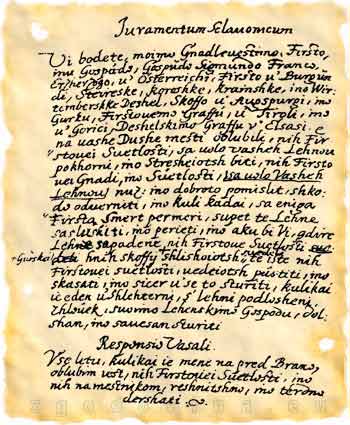 Iuramentum Sclavonicum
Vi bodete, moimu Gnadleuestimo, Firsto,
inu Gospudo, Gospudo Sigmundo Francu,
Erzherzogo, u' Österreichi, Firsto u' Burgun
di, Steireske, koroshke, krainshke, ino Wir-
temberske Deshel, Skoffo u' Auospurgi, ino
Gurku, Firstouemo Graffu u' Tiroli, ino
u' Gorici, Deshelskimo Graffu u' Elsasi. e
na uashe Dushe mesti oblubili, nih Fir
stouei Suetlosti, sa uolo vasheh Lehnou
pokhorni, ino Stresheiotsh biti, nih Firsto
uei Gnadi, ino Suetlosti, sa uolo Vasheh
Lehnou nuz: ino dobroto pomislit, shko-
do oduerniti, ino kuli kadai, sa eniga
Firsta Smert permeri, supet te Lehne
sashishiti, ino perieti, ino aku bi Vi, gdire
Lehne sapadene, nih Firstoue Suetlosti
hnih skoffij shlishoiotsh, te iste nih
Firstouei suetlosti, uedeiotsh pustiti, ino
skasati, ino sicer use to sturiti, kulikai
ie eden ushlehterni, s' lehni podloshenk
zhlouik, suoimo Lehenskimo Gospodu, dol-
shan, ino sauesan sturiti
Responsio Vasali.
Vse letu, kulikai ie mene na pred Branu,
oblubim uest, nih Firstouei Suetlosti, ino
nih namestnikom, reshnitshno, ino terdno
dershati